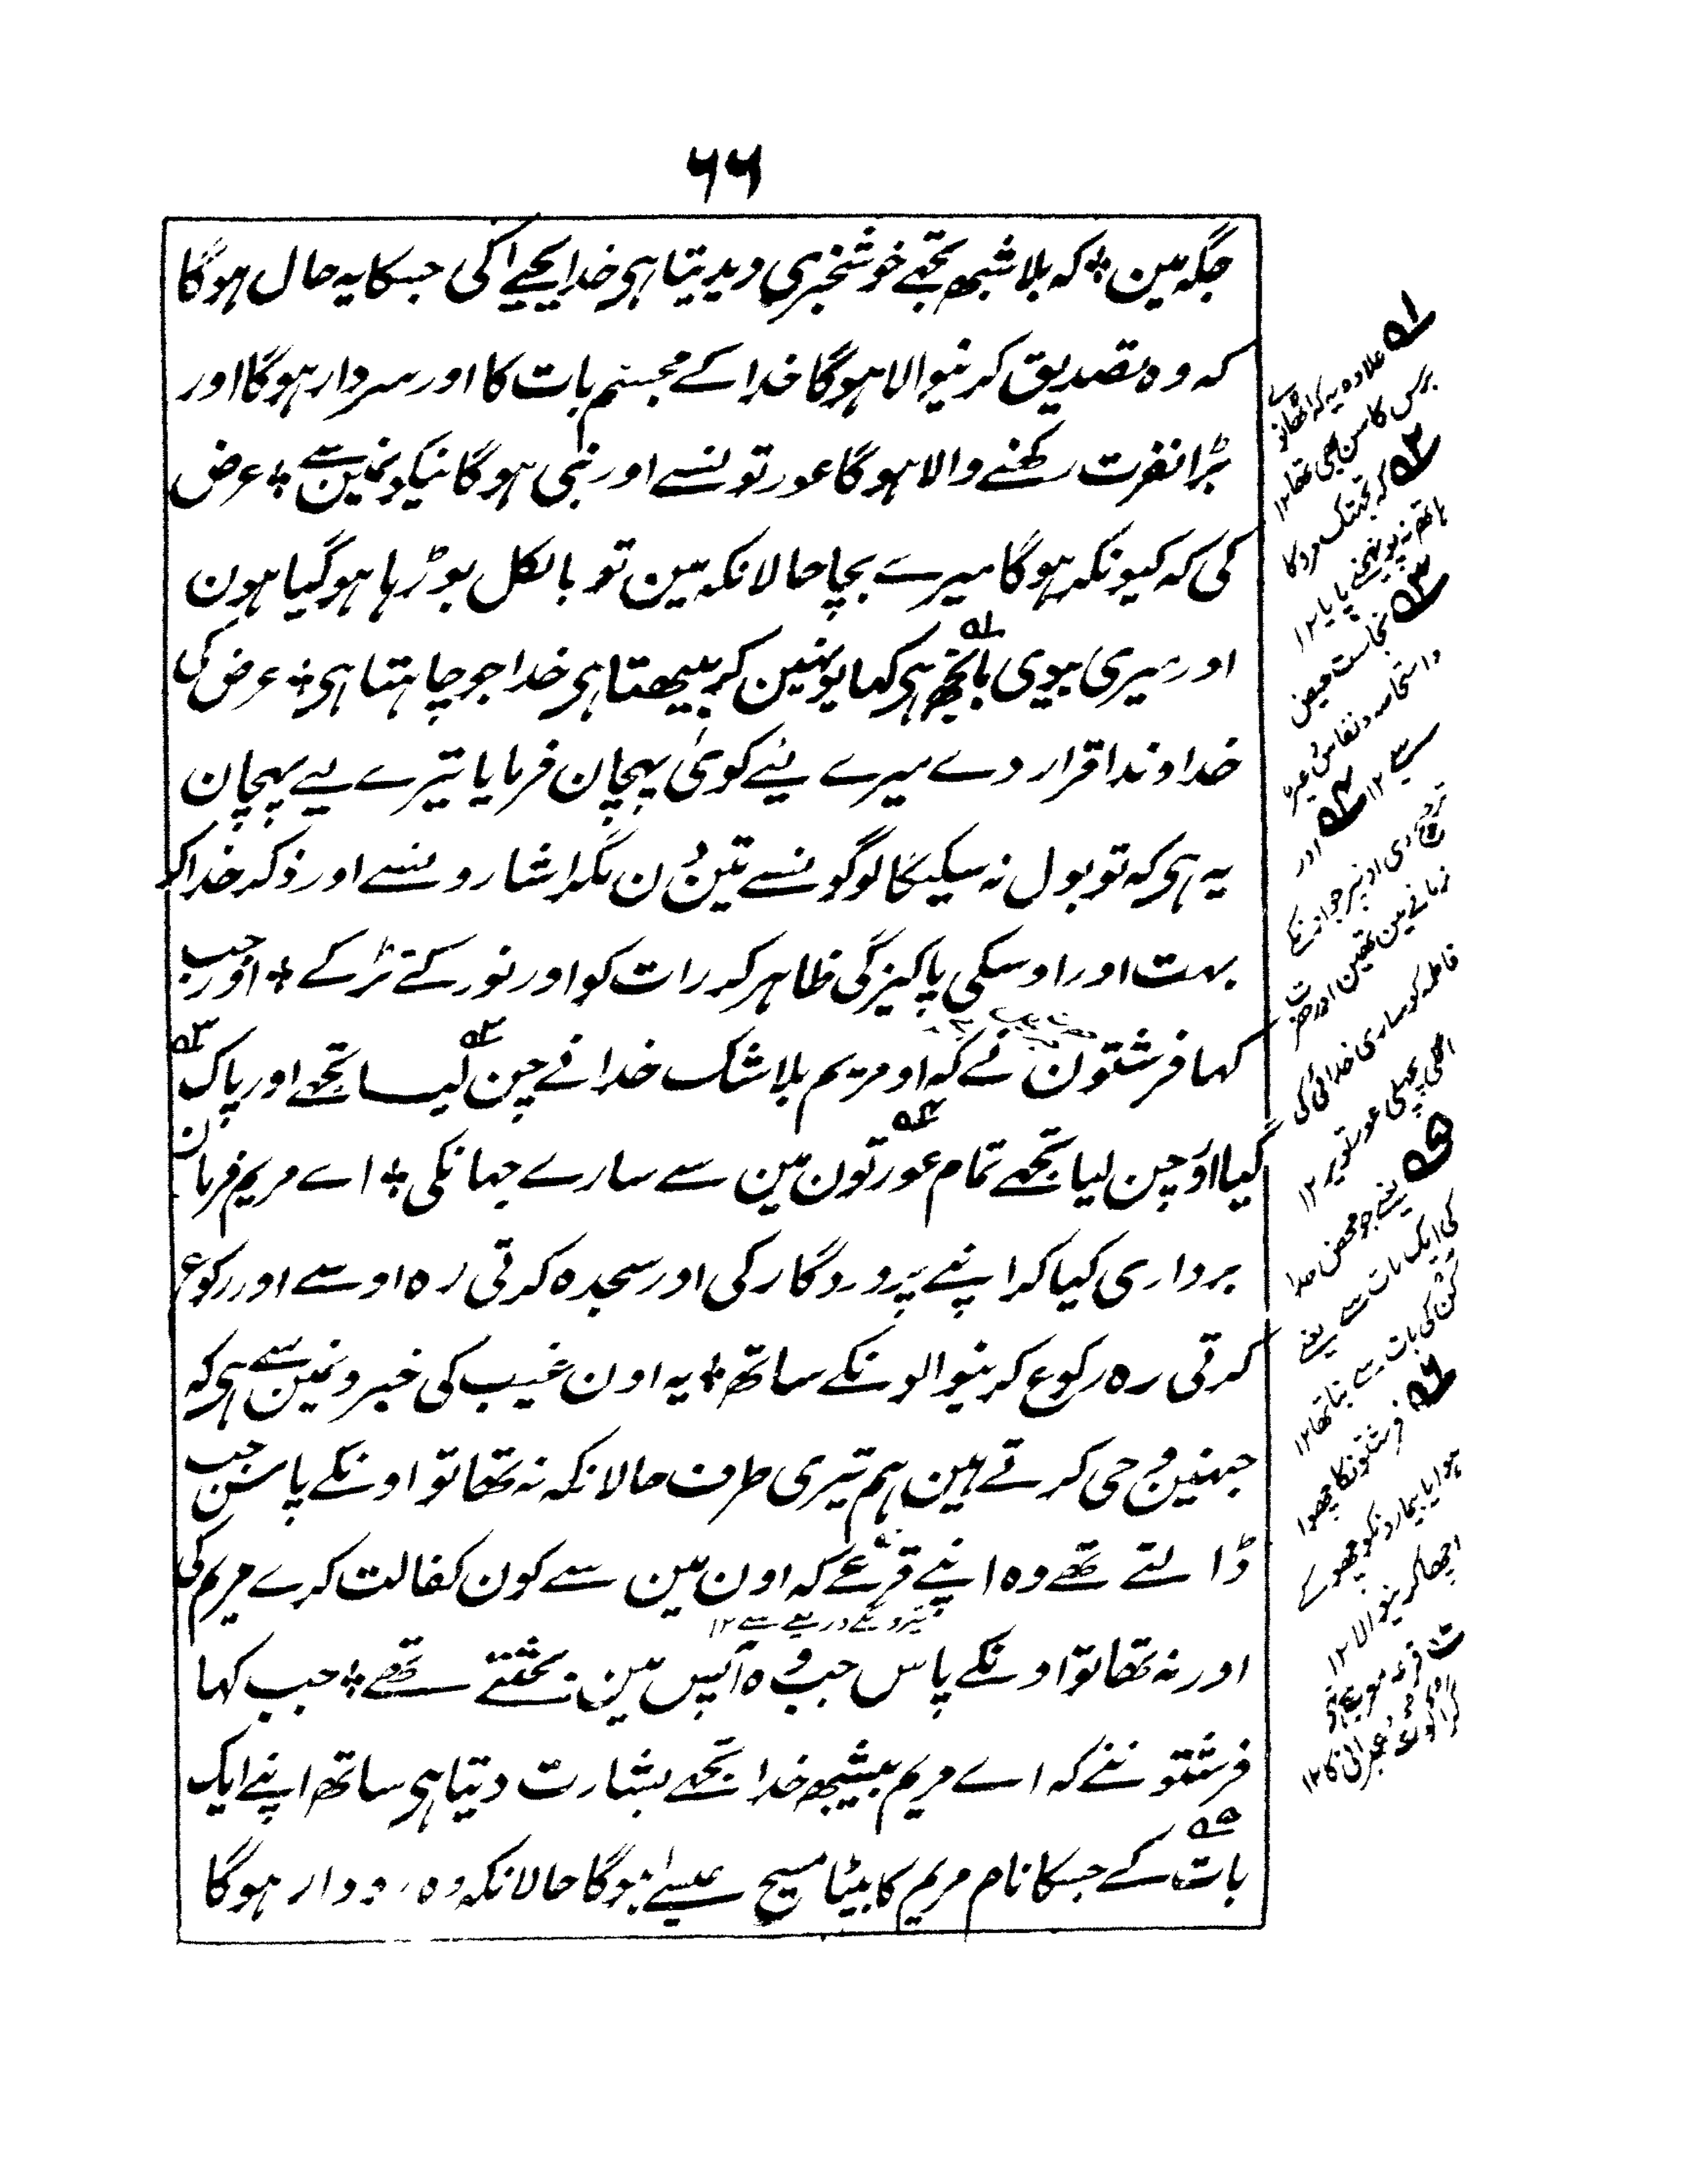 ۶۶
جگہ مین ❊ کہ بلا شبھہ تجھے خوشخبری ویدیتا ہی خدا یحییٰ کی جسکا یہ حال ہوگا
کہ وہ تصدیق کرنیوالا ہوگا خدا کے مجسم بات کا اور سردار ہوگا اور
بڑا نفرت رکھنے والا ہوگا عورتونسے اور نبی ہوگا نیکونمین سے ❊ عرض
کی کہ کیونکر ہوگا میرے بچا حالانکہ مین تو بالکل بوڑہا ہوگیا ہون
اور میری بیوی بانجھ ہی کہا یونہین کر بیٹھتا ہی خدا جو چاہتا ہی ❊ عرض کی
خداوندا قرار دے میرے لیے کوئی پہچان فرمایا تیرے لیے پہچان
یہ ہی کہ تو بول نہ سکیگا لوگونسے تین دن مگر اشارونسے اور ذکر خدا کر
بہت اور اوسکی پاکیزگی ظاہر کر رات کو اور نور کے تڑکے ❊ اور جب
کہا فرشتون نے کہ او مریم بلا شک خدا نے چن لیا تجھے اور پاک
کیا اور چن لیا تجھے تمام عورتون مین سے سارے جہانکی ❊ اے مریم فرمان
برداری کیا کر اپنے پروردگار کی اور سجدہ کرتی رہ اوسے اور رکوع
کرتی رہ رکوع کرنیوالونکے ساتھ ❊ یہ اون غیب کی خبرونمین سے ہی کہ
جنہین وحی کرتے ہین ہم تیری طرف حالانکہ نہ تھا تو اونکے پاس جب
ڈالتے تھے وہ اپنے قرعے کہ اون مین سے کون کفالت کرے مریم کی
اور نہ تھا تو اونکے پاس جب وہ آپس مین بحثتے تھے ❊ جب کہا
فرشتوننے کہ اے مریم بیشبھہ خدا تجھے بشارت دیتا ہی ساتھ اپنے ایک
بات کے جسکا نام مریم کا بیٹا مسیح عیسےٰ ہوگا حالانکہ وہ رودار ہوگا
علاوہ یہ کہ اٹھانوے
برس کا سن بھی تھا ۱۲
کہ تجھتک مرد کا
ہاتھ نہ پہونچنے پایا ۱۲
نجاست حیض
واستحاضہ ونفاس وغیرہ
سے ۱۲ اور
ترجیح دی اونپر جو اونکے
زمانے مین تھین اور حضرت
فاطمہ کو ساری خدائی کی
اگلی پچھلی عورتونپر ۱۲
یعنے جو محض خدا
کی ایک بات سے یعنے
کن کی بات سے بنا تھا ۱۲
فرشتونکا چھوا
ہوا یا بیمارونکو چھوکے
اچھا کرنیوالا ۱۲